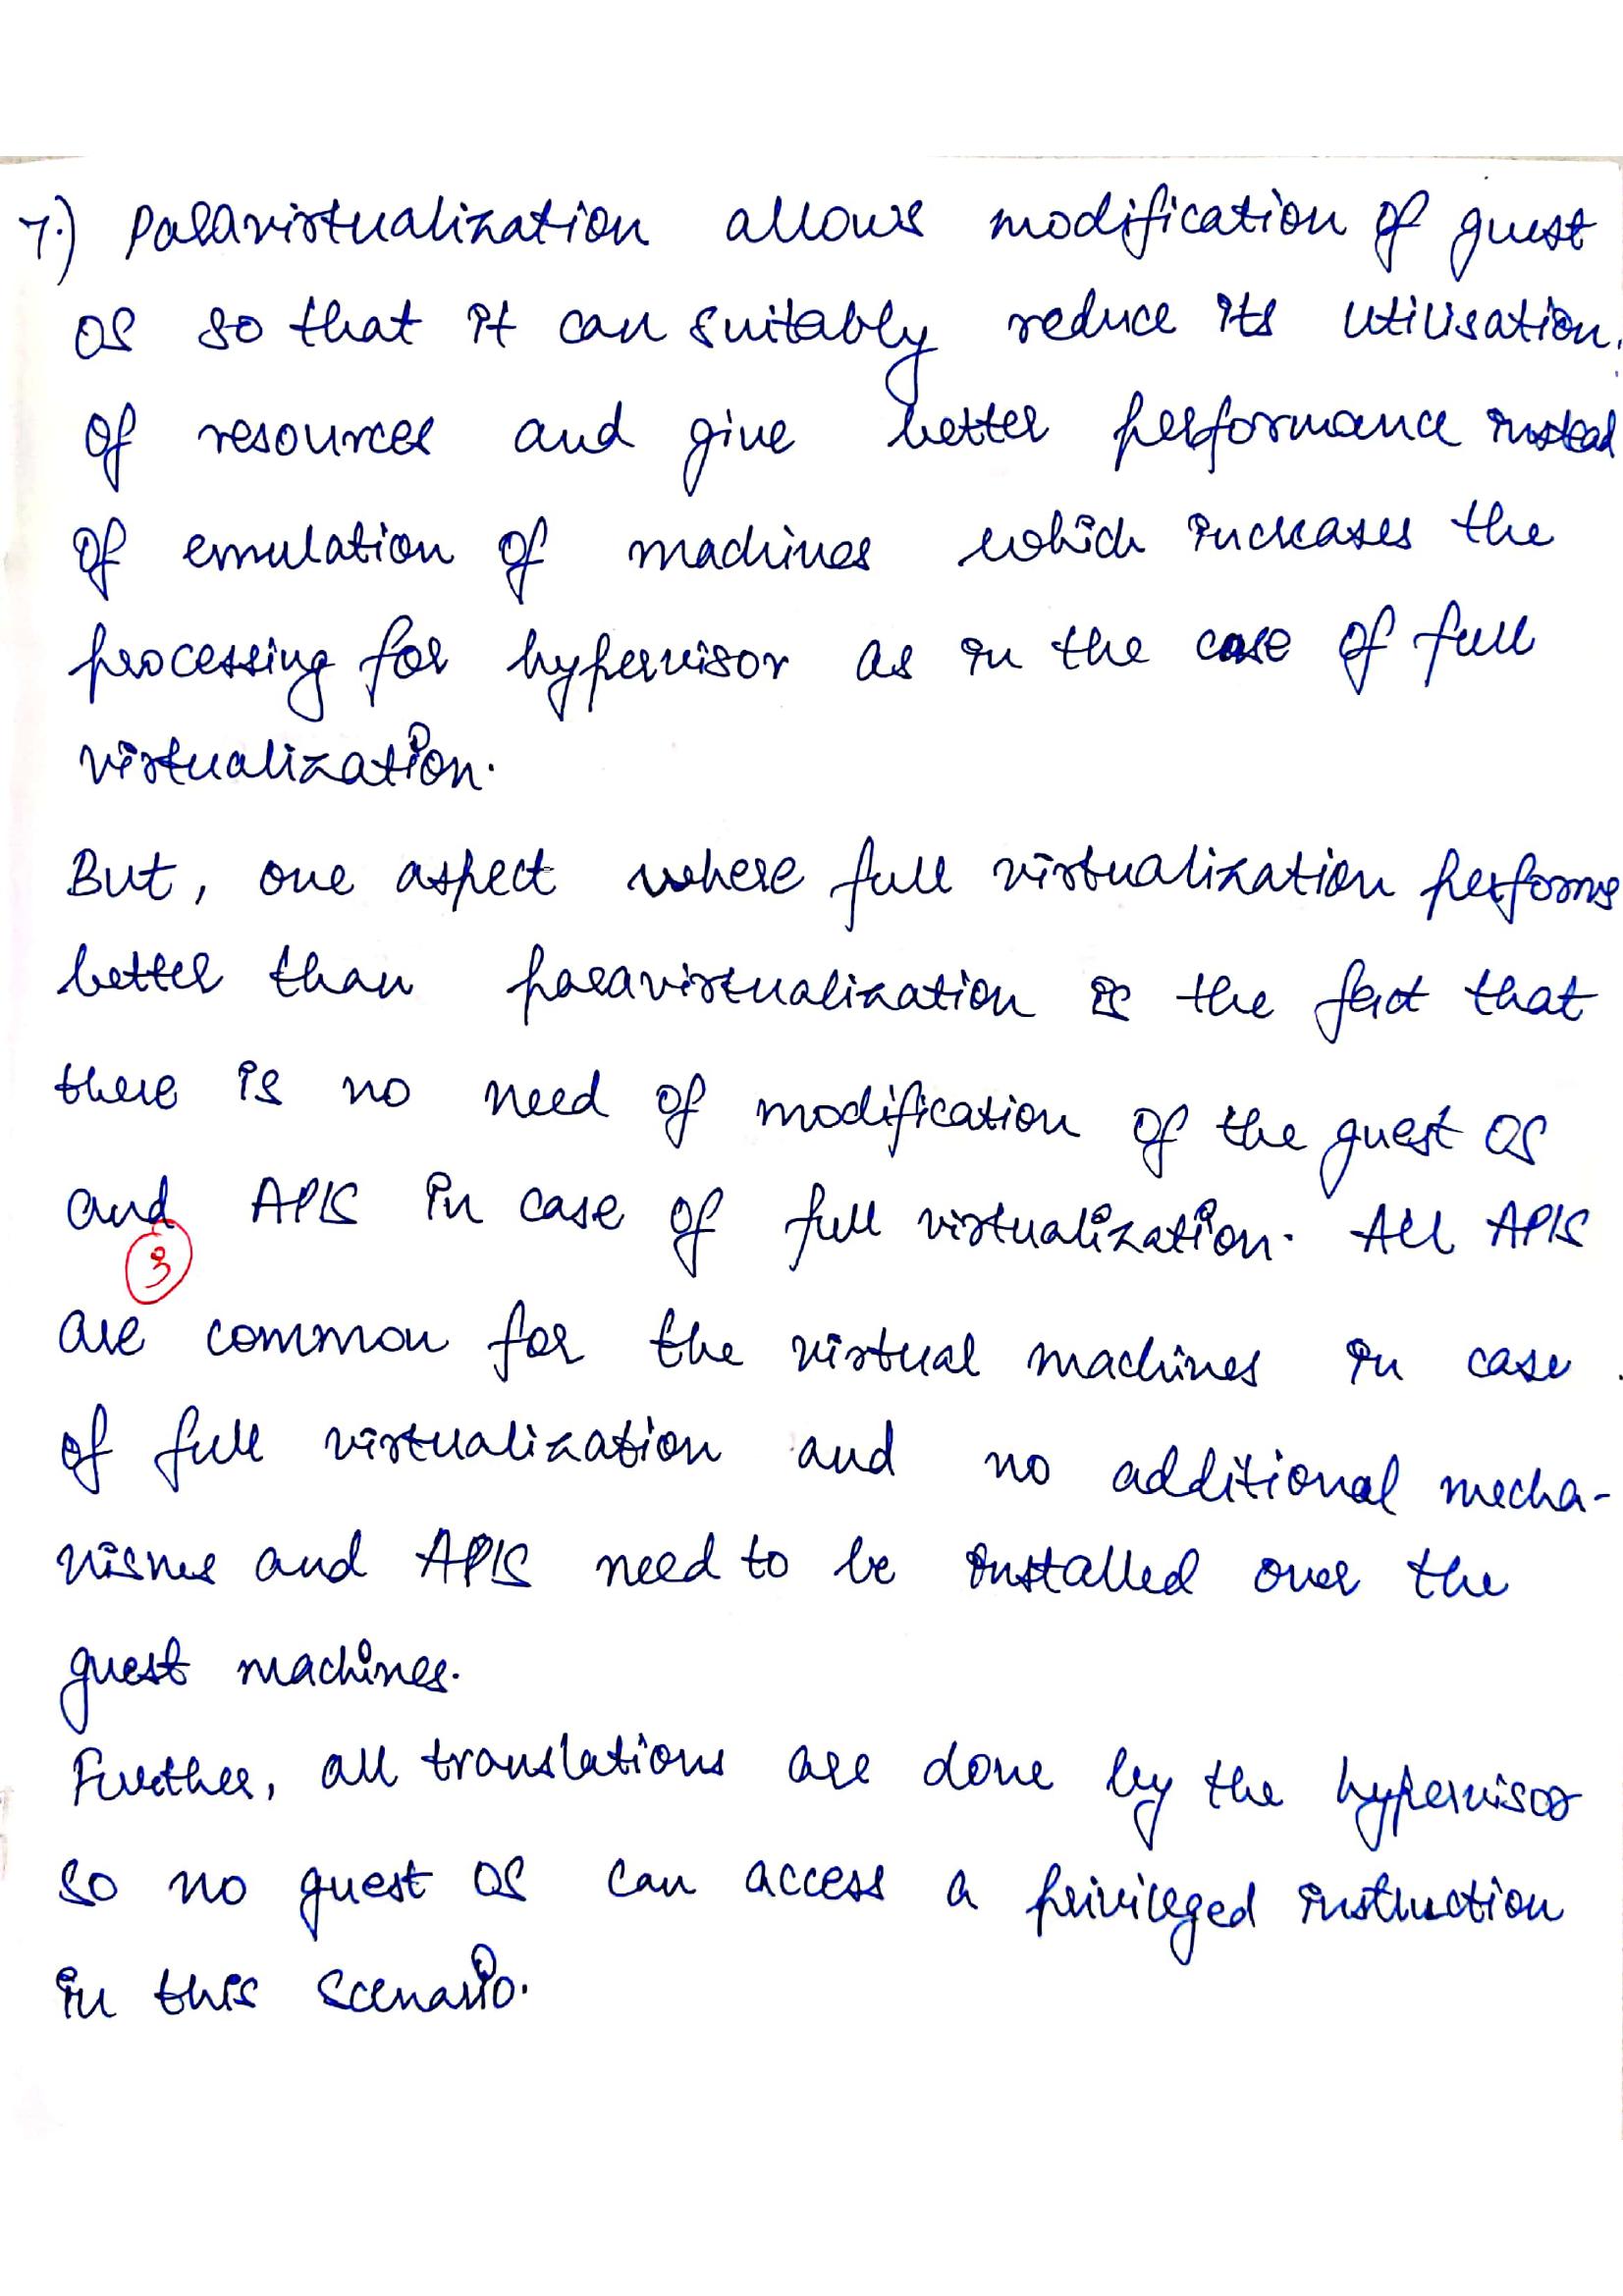 7.) Paravirtualization allows modification of guest
OS so that it can suitably reduce its utilisation.
of resources and give better performance instead
of emulation of machines which increases the
processing for hypervisor as in the case of full
virtualization.
But, one aspect where full virtualization performs
better than paravirtualization is the fact that
there is no need of modification of the guest OS
and APIs in case of full virtualization. All APIs
3
are common for the virtual machines in case
of full virtualization and no additional mecha-
nisms and APIs need to be installed over the
guest machines.
Further, all translations are done by the hypervisor
so no guest OS can access a privileged instruction
in this scenario.